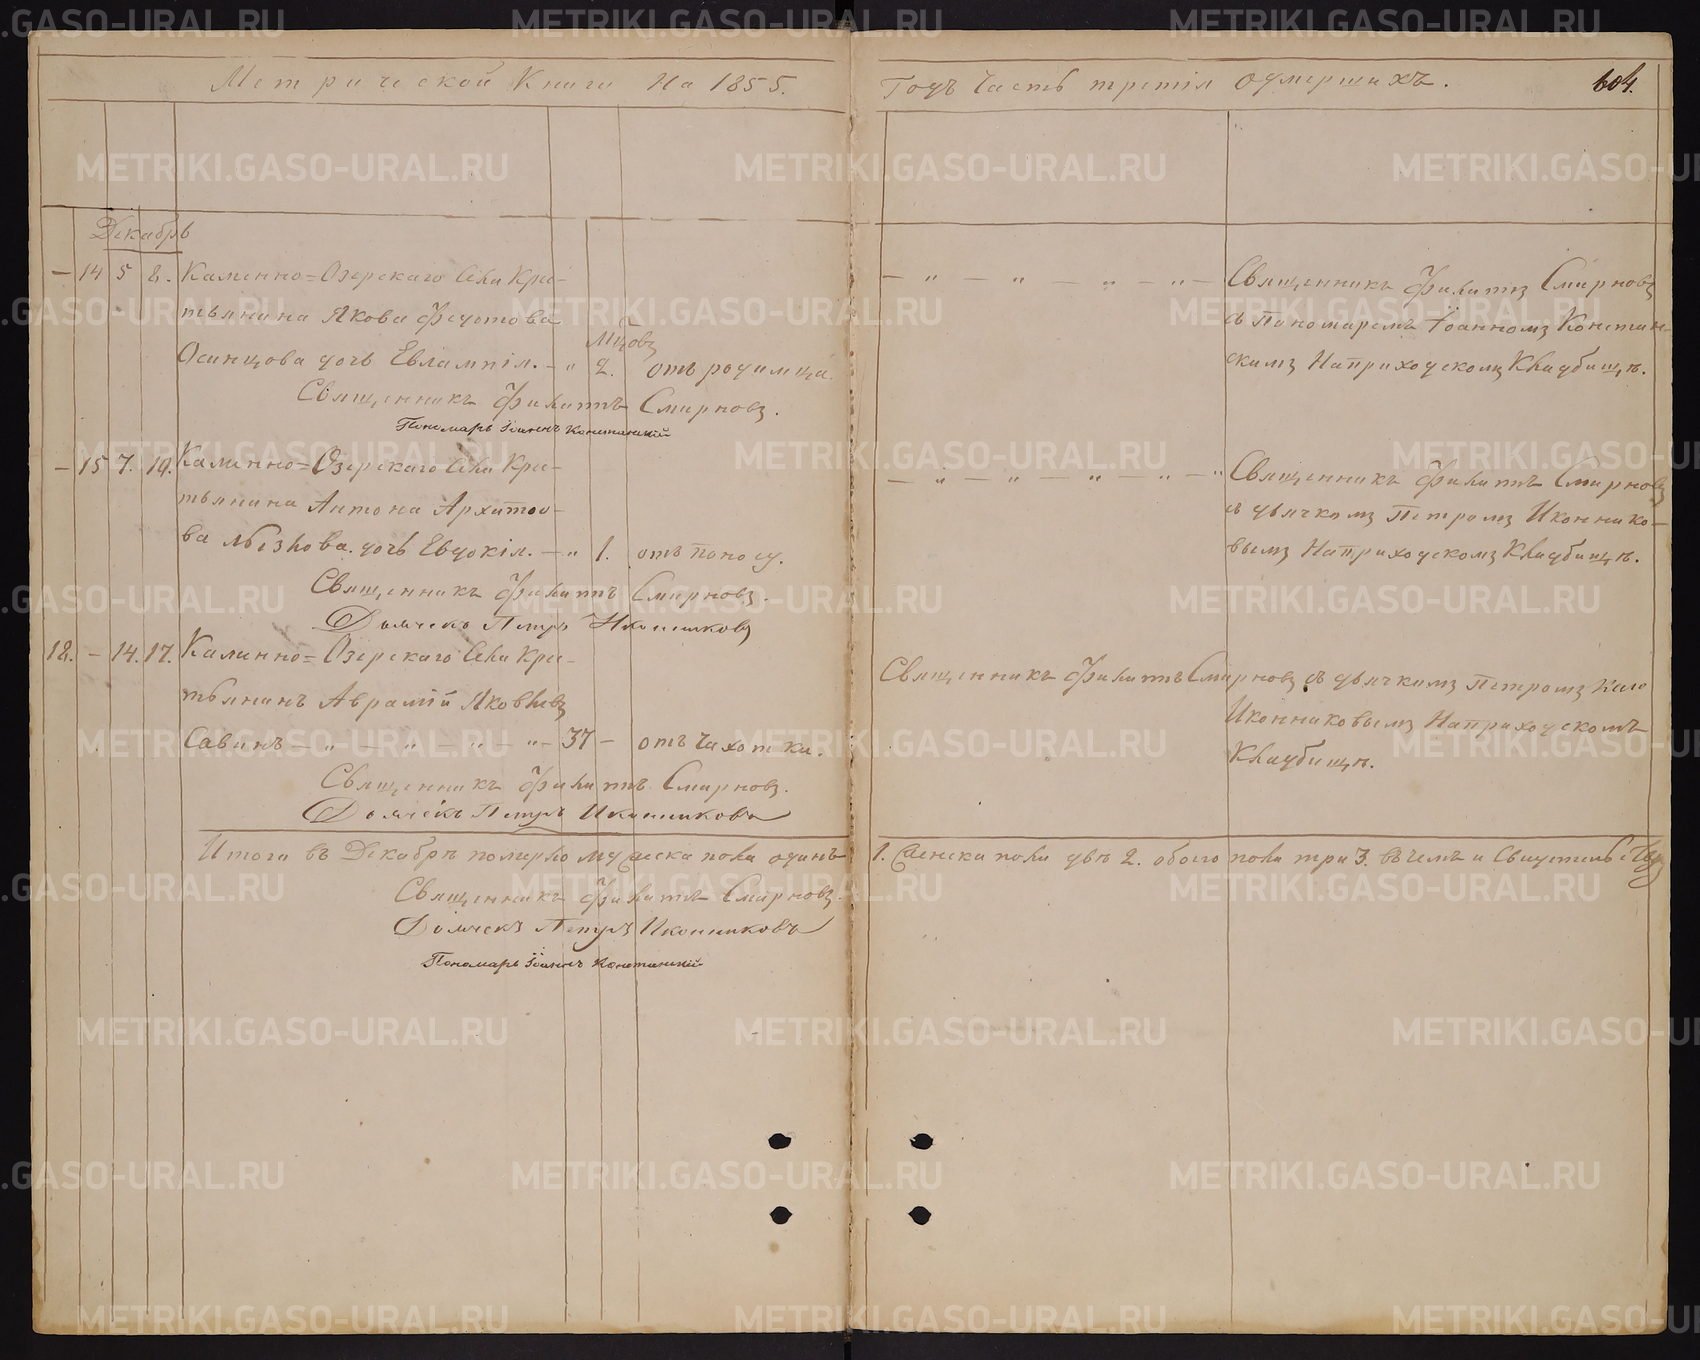 Метрической Книги На 1855.
Годъ Часть третія о умершихъ.
604.
Декабрь
– 14 5 8. Каменно=Озерскаго Села Кре-
стьянина Якова Федотова
Мцовъ
Осинцова дочь Евлампія. – „ 2. отъ родимца.
Священникъ Филиппъ Смирновъ.
Пономарь Іоаннъ Констанскій
– „ – „ – „ – „ – Священникъ Филиппъ Смирновъ
съ Пономаремъ Іоанномъ Констан-
скимъ На приходскомъ Кладбищѣ.
– 15 7. 10. Каменно=Озерскаго Села Кре-
стьянина Антона Архипо-
ва дочь Евдокія. – „ 1. отъ поносу.
Священникъ Филиппъ Смирновъ.
Дьячекъ Петръ Иконниковъ
– „ – „ – „ – „ – „ Священникъ Филиппъ Смирновъ
съ дьячкомъ Петромъ Иконнико-
вымъ На приходскомъ Кладбищѣ.
18. – 14. 17. Каменно=Озерскаго Села Кре-
стьянинъ Аврамій Яковлевъ
Савинъ – „ – „ – „ – „ – 37 – отъ Чахотки.
Священникъ Филиппъ Смирновъ.
Дьячекъ Петръ Иконниковъ
Священникъ Филиппъ Смирновъ съ дьячкомъ Петромъ
Иконниковымъ На приходскомъ
Кладбищѣ.
Итого въ Декабрѣ померло мужеска пола одинъ 1. Женска пола двѣ 2. обоего пола три 3. въ чемъ и Свидетельству
Священникъ Филиппъ Смирновъ.
Дьячекъ Петръ Иконниковъ
Пономарь Іоаннъ Констанскій
METRIKI.GASO-URAL.RU